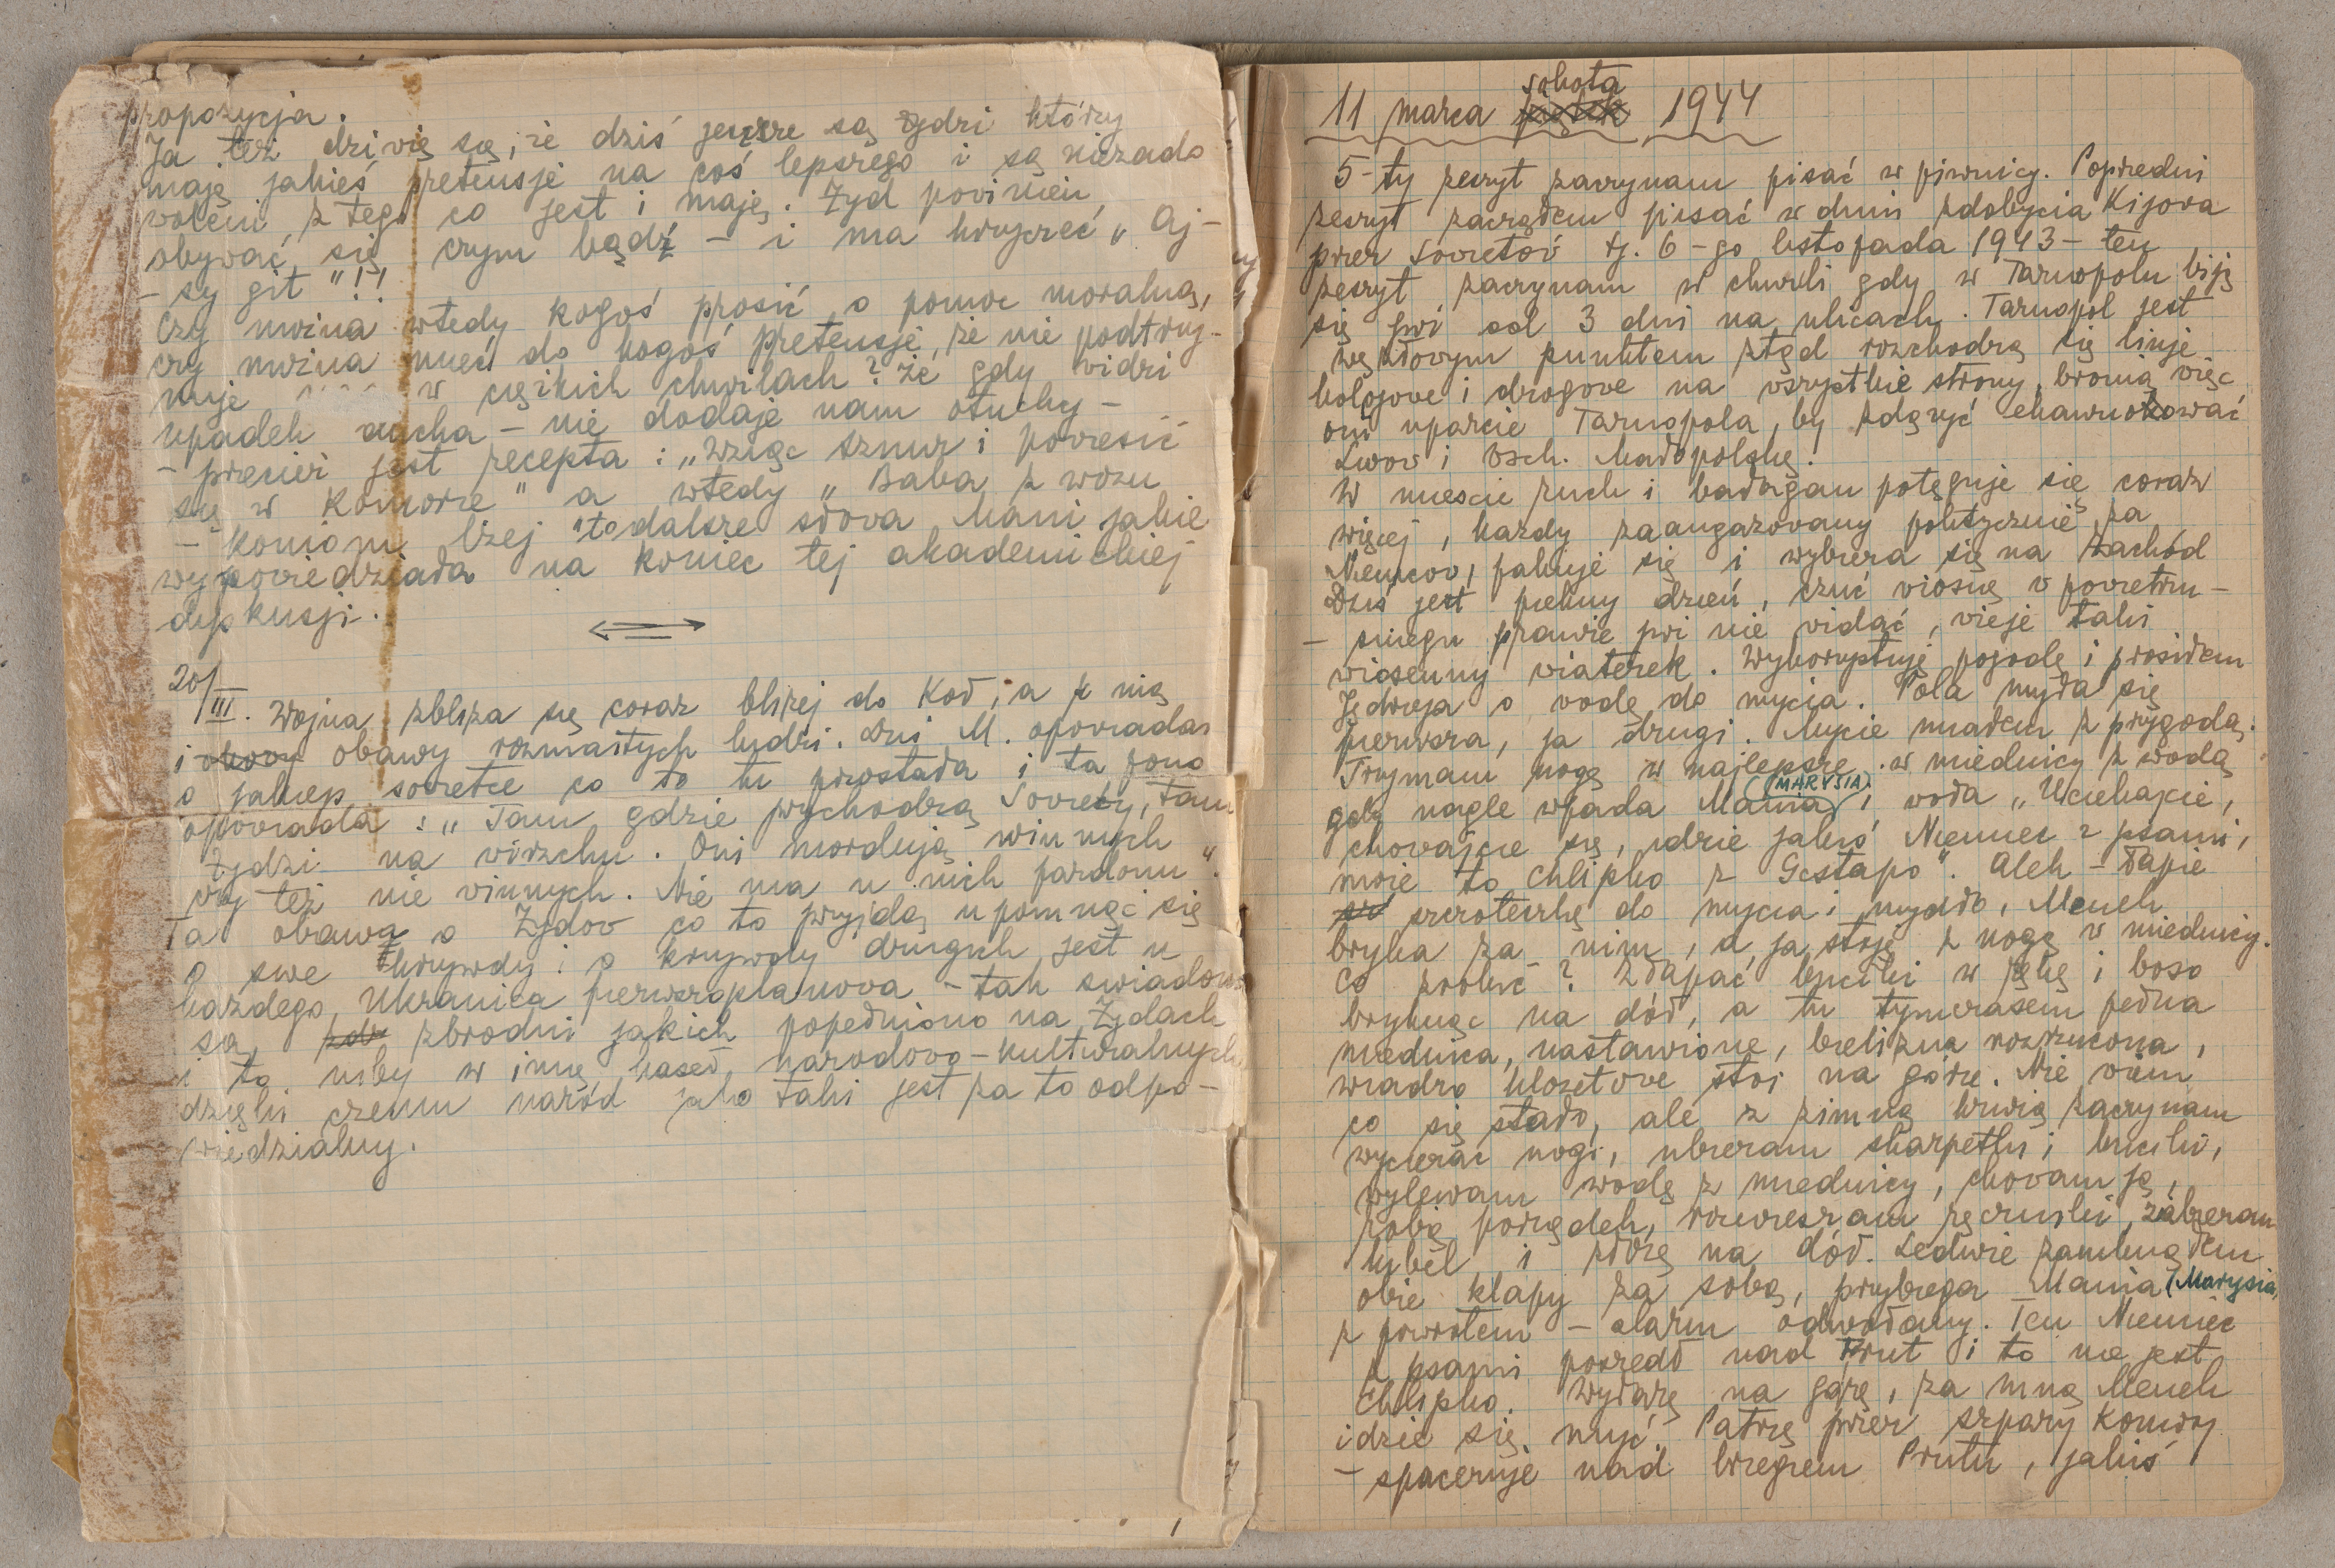 propozycja.
Ja też dziwię się, że dziś jeszcze są żydzi którzy
mają jakieś pretensje na coś lepszego i są niezado
woleni z tego co jest i mają. Żyd powinien
obywać się czym bądź – i ma krzyczeć „Aj –
– sy git"!!
Czy można wtedy kogoś prosić o pomoc moralną,
czy można mieć do kogoś pretensje, że nie podtrzy-
muje w ciężkich chwilach? że gdy widzi
upadek ducha – nie dodaje nam otuchy –
– przecież jest recepta: „Wziąć sznur i powiesić
się w komorze" a wtedy „Baba z wozu
– koniom lżej" to dalsze słowa Mani jakie
wypowiedziała na koniec tej akademickiej
dyskusji.
20/III. Wojna zbliża się coraz bliżej do Koł, a z nią
i obawy rozmaitych ludzi. Dziś M. opowiadał
o jakiejś sovietce co to tu przostała i ta pono
opowiada: „Tam gdzie przychodzą Soviety, tam
Żydzi na wierzchu. Oni mordują winnych
czy też nie winnych. Nie ma u nich pardonu".
Ta obawa o Żydów co to przyjdą upomnąć się
o swe krzywdy i o krzywdy drugich jest u
każdego Ukraińca pierwszoplanowa – tak świadomi
są zbrodni jakich popełniono na Żydach
i to niby w imię haseł narodowo-kulturalnych
dzięki czemu naród jako taki jest za to odpo-
wiedzialny.
11 marca sobota 1944
5-ty zeszyt zaczynam pisać w piwnicy. Poprzedni
zeszyt zacząłem pisać w dniu zdobycia Kijova
przez Sovietóv tj. 6-go listopada 1943 – ten
zeszyt zaczynam w chwili gdy w Tarnopolu biją
się już od 3 dni na ulicach. Tarnopol jest
węzłowym punktem ztąd rozchodzą się linje
kolejove i drogove na wszystkie strony, bronią więc
oni uparcie Tarnopola, by zdążyć ewakuować
Lwov i Wsch. Małopolskę.
W mieście ruch i bałagan potęguje się coraz
więcej, każdy zaangażowany politycznie za
Niemcov, pakuje się i wybiera się na zachód
Dziś jest piękny dzień, czuć viosnę v povietrzu –
– śniegu prawie już nie vidać, vieje taki
wiosenny viaterek. Wykorzystuję pogodę i prosiłem
Jędrzeja o vodę do mycia. Pola myła się
pierwsza, ja drugi. Mycie miałem z przygodą.
Trzymam nogę w najlepsze w miednicy z wodą
gdy nagle wpada Mania (MARYSIA) i woła „Uciekajcie,
chovajcie się, idzie jakiś Niemiec z psami,
może to Chlipko z Gestapo". Alek – łapie
szczoteczkę do mycia i mydło, Menek
bryka za nim, a ja stoję z nogą v miednicy.
Co robić? Złapać buciki w rękę i boso
bryknąć na dół, a tu tymczasem pełna
miednica, nastawione, bielizna rozrzucona,
wiadro klozetove stoi na górze. Nie wiem
co się stało, ale z zimną krwią zaczynam
wycierać nogi, ubieram skarpetki i buciki,
wylewam wodę z miednicy, chovam ją,
robię porządek, rozwieszam ręczniki, zabieram
kubeł i złożę na dół. Ledwie zamknąłem
obie klapy za sobą, przybiega Mania (Marysia)
z powrotem – alarm odwołany. Ten Niemiec
z psami poszedł nad Prut i to nie jest
Chlipko. Wyłażę na górę, za mną Menek
idzie się myć. Patrzę przez szpary komory
– spaceruje nad brzegiem Prutu, jakiś